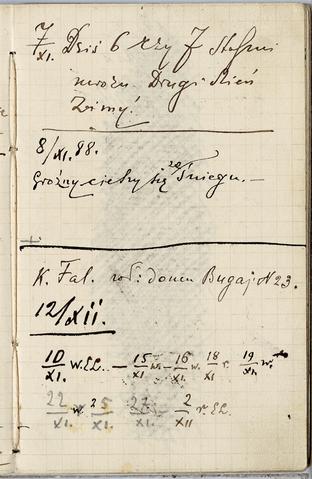 7/XI. Dziś 6 czy 7 Stopni
mrozu. Drugi dzień
Zimy!
8/XI. 88.
Groźny cieszy się ze Śniegu. —
K. Fal. dom Bugaj N 23.
12/XII.
10/XI. w. EL. — 15/XI w. — 16/XI. w. 18/XI r. 19/XI. w.
22/XI. w. 25/XI. 27/XI. — 2/XII r. EL.